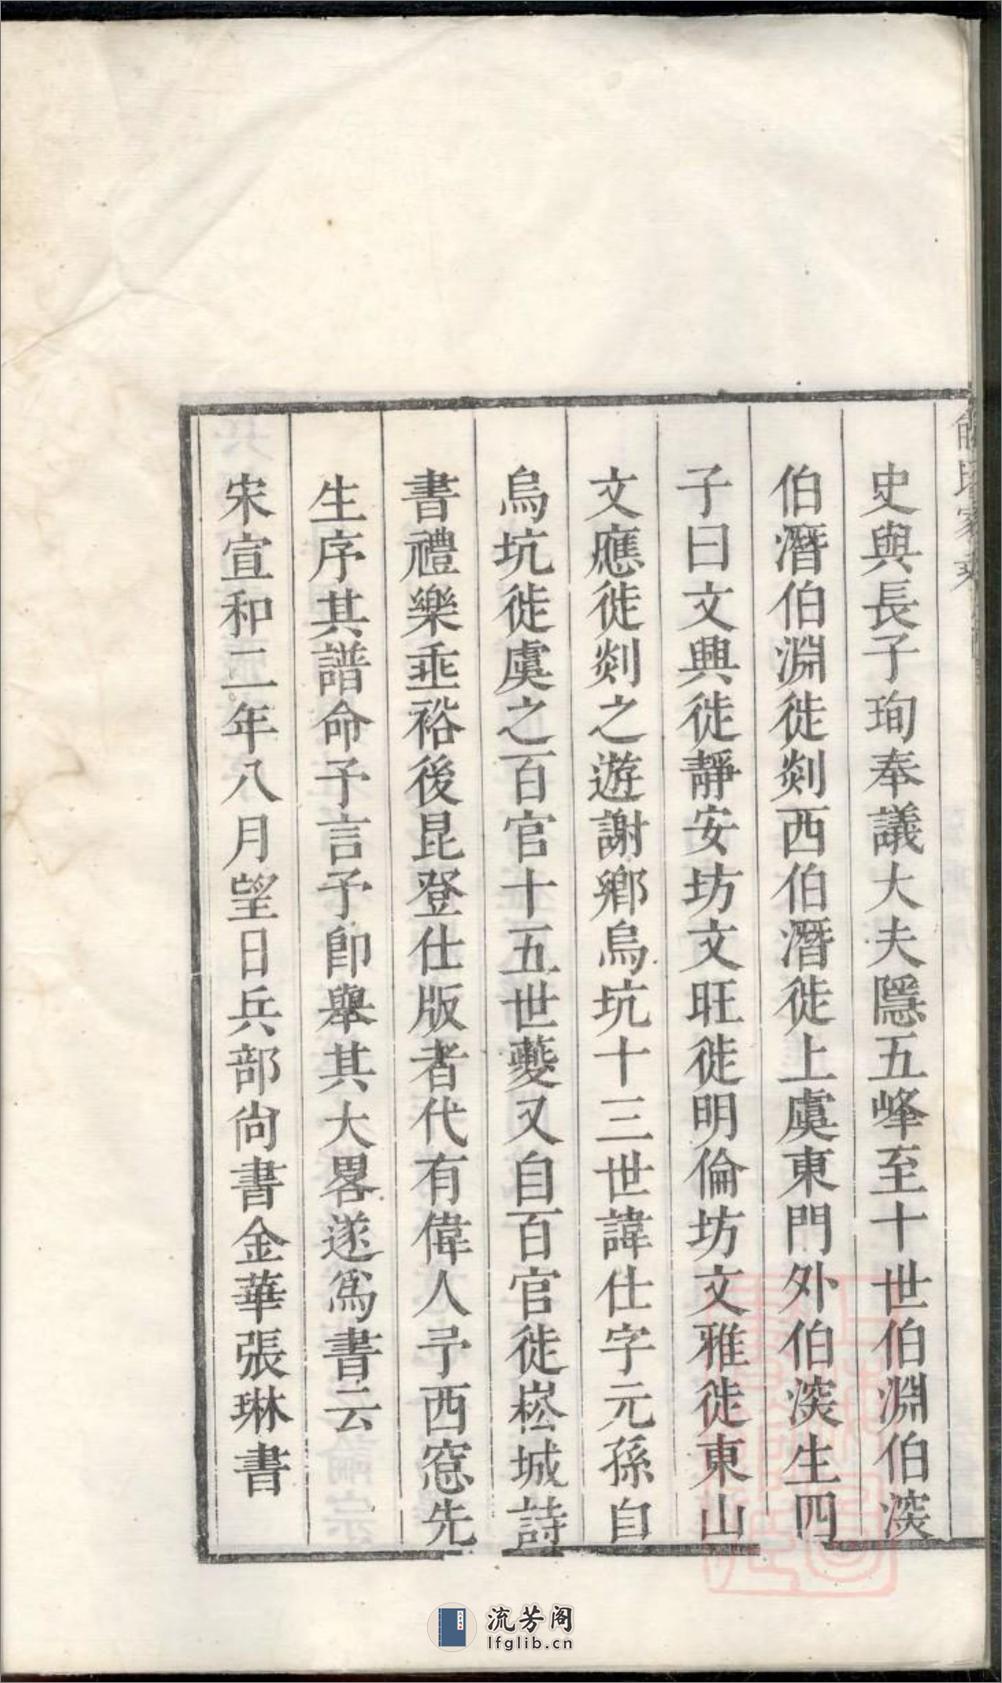 史與長子珣奉議大夫隱五峰至十世伯淵伯湥
伯潛伯淵徙剡西伯潛徙上虞東門外伯湥生四
子曰文興徙靜安坊文旺徙明倫坊文雅徙東山
文應徙剡之遊謝鄉烏坑十三世諱仕字元孫自
烏坑徙虞之百官十五世夔又自百官徙崧城詩
書禮樂垂裕後昆登仕版者代有偉人予西窓先
生序其譜命予言予卽舉其大畧遂爲書云
宋宣和二年八月望日兵部尙書金華張琳書
流芳阁
lfglib.cn